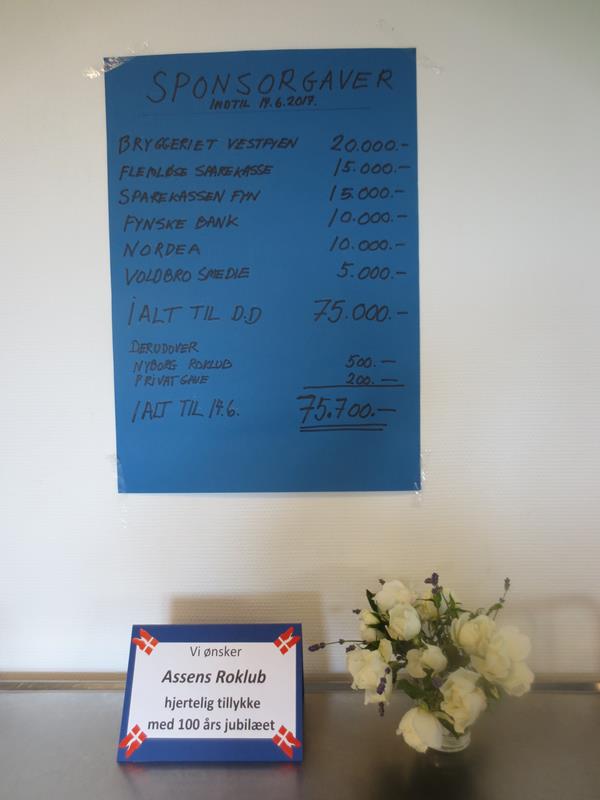 SPONSORGAVER
INDTIL 14.6.2017.
BRYGGERIET VESTFYEN 20.000.-
FLEMLØSE SPAREKASSE 15.000.-
SPAREKASSEN FYN 15.000.-
FYNSKE BANK 10.000.-
NORDEA 10.000.-
VOLDBRO SMEDIE 5.000.-
I ALT TIL D.D 75.000.-
DERUDOVER
NYBORG ROKLUB 500.-
PRIVAT GAVE 200.-
I ALT TIL 14.6. 75.700.-
Vi ønsker
Assens Roklub
hjertelig tillykke
med 100 års jubilæet